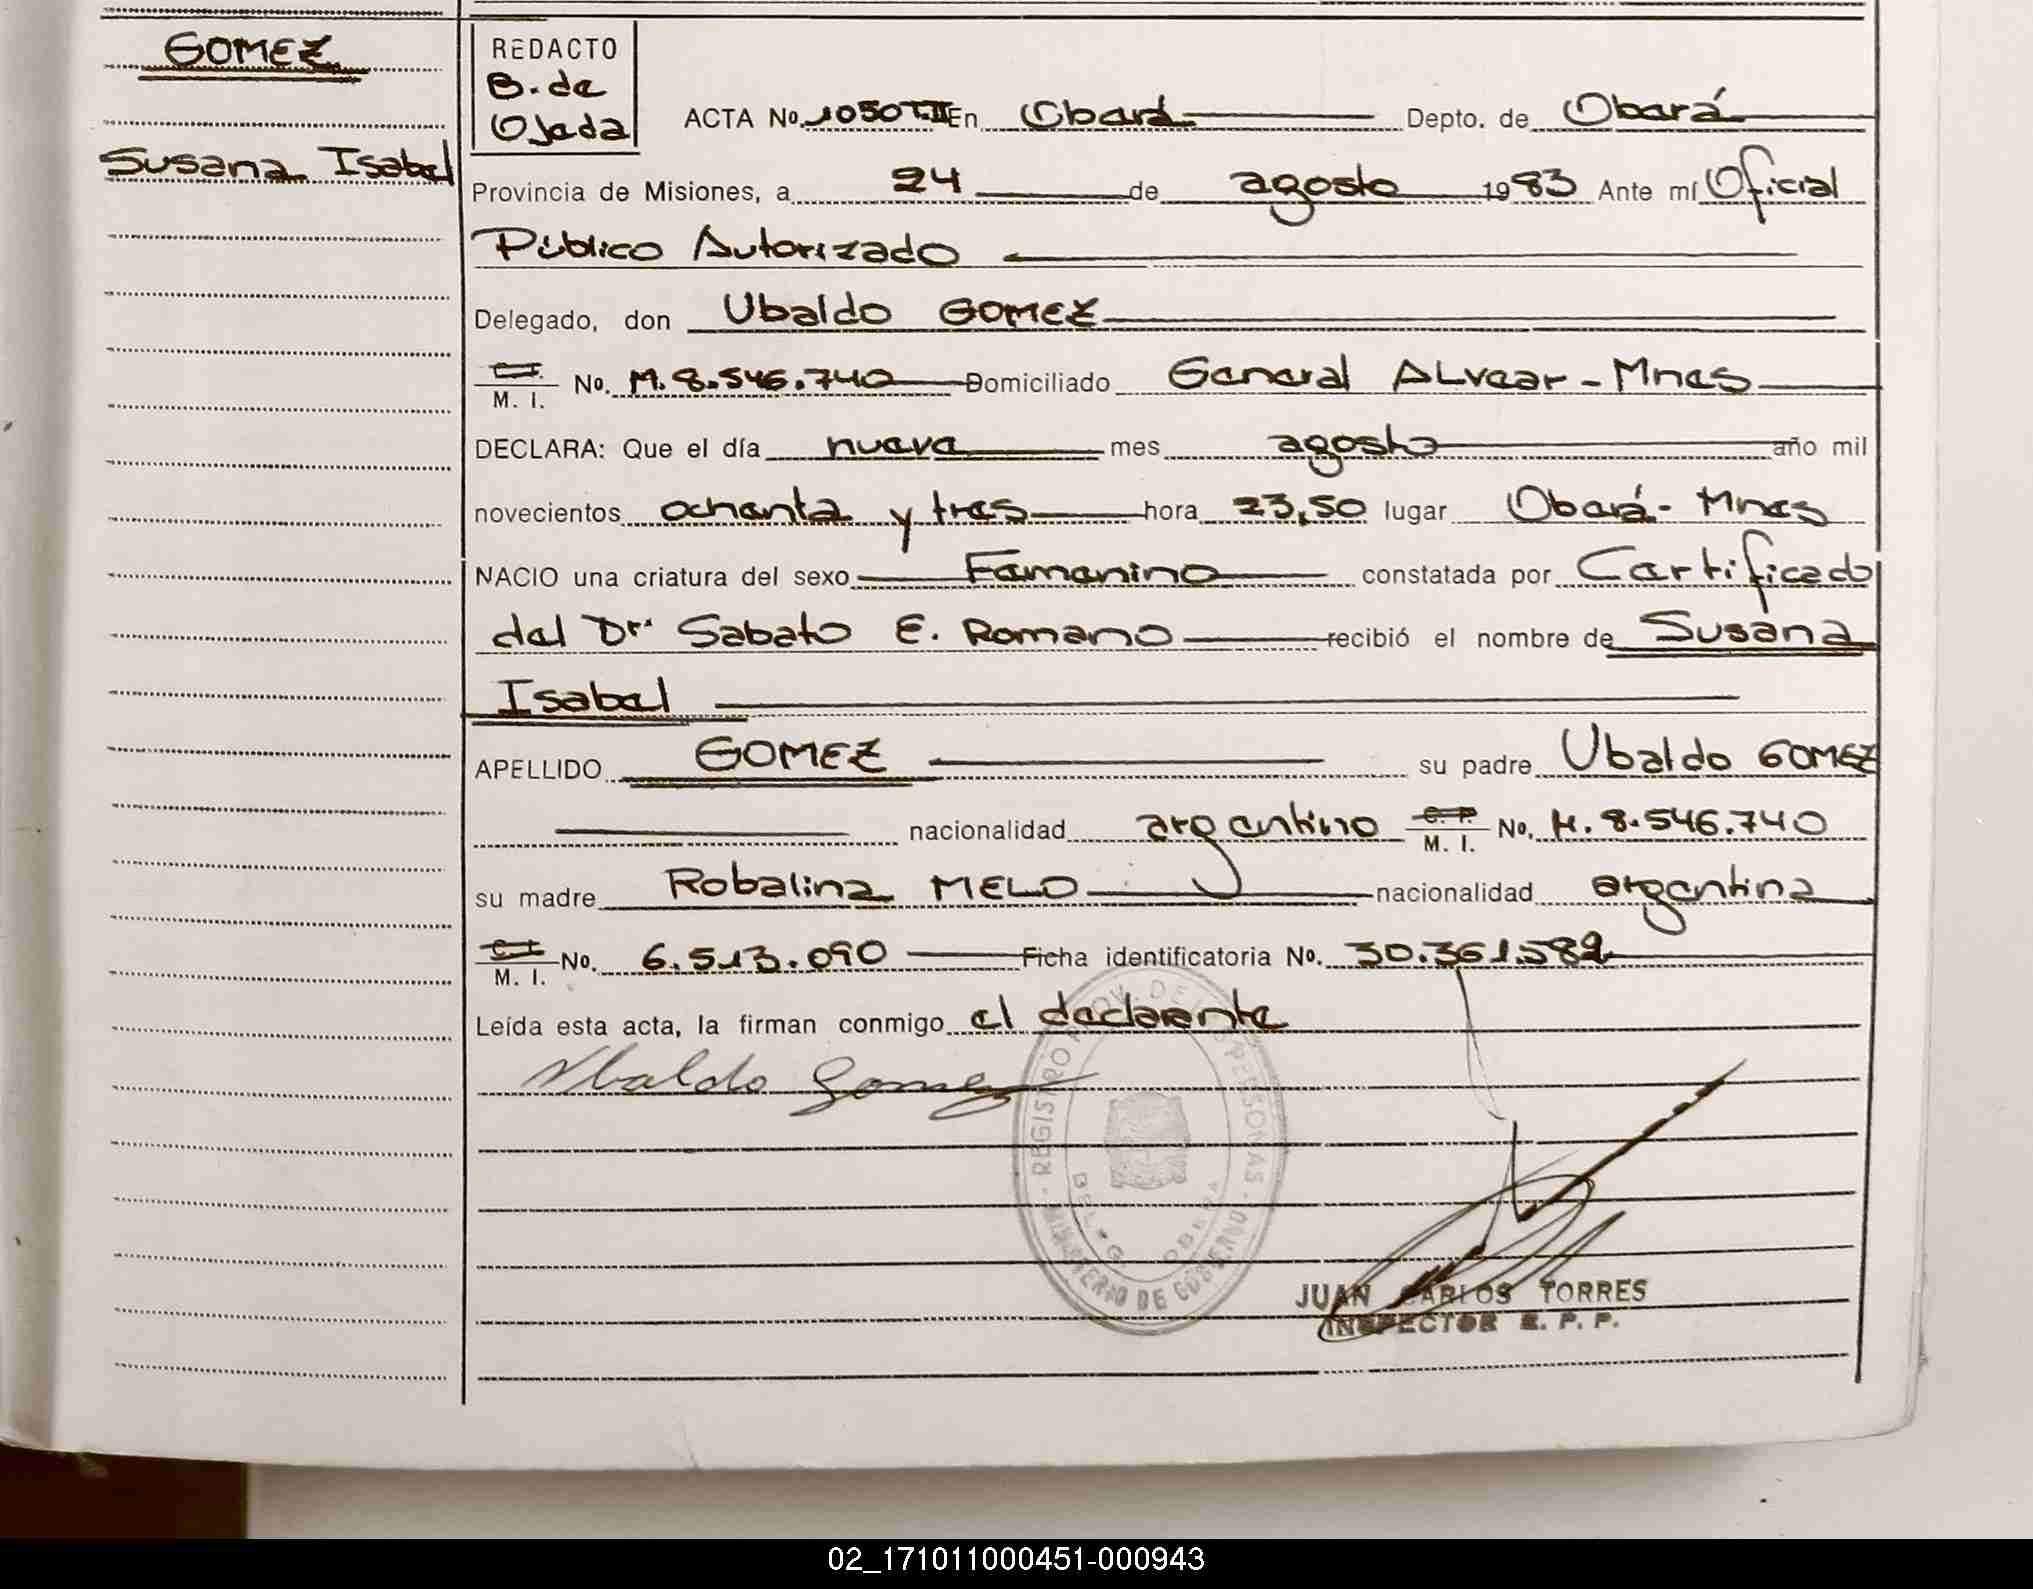 GOMEZ
Susana Isabel
REDACTO
B. de
Ojeda
ACTA No. 1050 T-II En Oberá Depto. de Oberá
Provincia de Misiones, a 24 de agosto 1983 Ante mí Oficial
Público Autorizado
Delegado, don Ubaldo GOMEZ
C. I.
M. I. No. M. 8.546.740 Domiciliado General ALvear - Mnes
DECLARA: Que el día nueve mes agosto año mil
novecientos ochenta y tres hora 23,50 lugar Oberá - Mnes
NACIO una criatura del sexo Femenino constatada por Certificado
del Dr. Sabato E. Romano recibió el nombre de Susana
Isabel
APELLIDO GOMEZ su padre Ubaldo GOMEZ
nacionalidad argentino M. I. No. M. 8.546.740
su madre Robelina MELO nacionalidad argentina
C. I.
M. I. No. 6.513.090 Ficha identificatoria No. 30.361.582
Leída esta acta, la firman conmigo el declarante
Ubaldo Gomez
REGISTRO PROV. DE LAS PERSONAS
DELEG. OBERA
MINISTERIO DE GOBIERNO
JUAN CARLOS TORRES
INSPECTOR R. P. P.
02_171011000451-000943